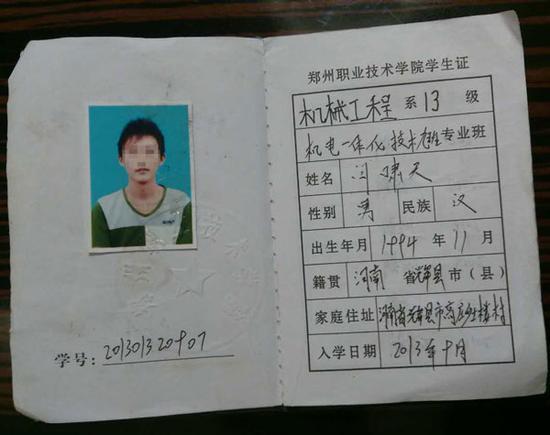 学号: 201301320907
郑州职业技术学院学生证
机械工程 系 13 级
机电一体化技术 专业班
姓名 闫啸天
性别 男 民族 汉
出生年月 1994 年 11 月
籍贯 河南 省辉县市（县）
家庭住址 河南省辉县市高庄乡楼村
入学日期 2013年9月